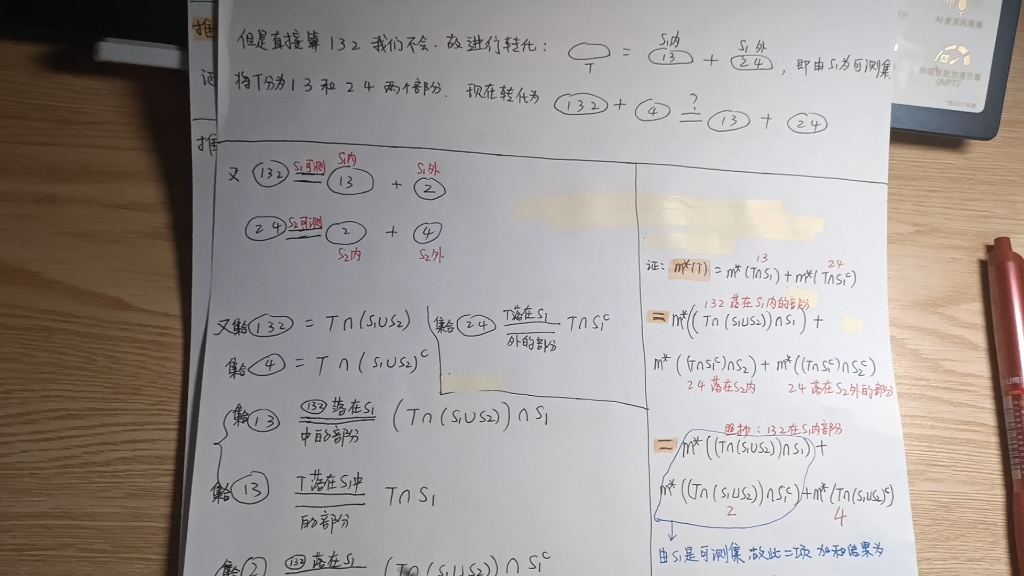 但是直接算132我们不会.故进行转化:
T = S₁内 13 + S₁外 24, 即由S₁为可测集
将T分为13和24两个部分. 现在转化为 132 + 4 ?= 13 + 24
又 132 S₁可测= S₁内 13 + S₁外 2
24 S₂可测= 2 S₂内 + 4 S₂外
又集合132 = T∩(S₁∪S₂)
集合4 = T∩(S₁∪S₂)ᶜ
集合24 T落在S₁外的部分 T∩S₁ᶜ
集合13 132落在S₁中的部分 (T∩(S₁∪S₂))∩S₁
集合13 T落在S₁中的部分 T∩S₁
集合2 132落在S₁ (T∩(S₁∪S₂))∩S₁ᶜ
证: m*(T) = m*(T∩S₁) + m*(T∩S₁ᶜ)
13 24
132落在S₁内的部分
= m*((T∩(S₁∪S₂))∩S₁) +
m*((T∩S₁ᶜ)∩S₂) + m*((T∩S₁ᶜ)∩S₂ᶜ)
24落在S₂内 24落在S₂外的部分
照抄:132在S₁内部分
= m*((T∩(S₁∪S₂))∩S₁) +
m*((T∩(S₁∪S₂))∩S₁ᶜ) + m*(T∩(S₁∪S₂)ᶜ)
2 4
由S₁是可测集 故此二项加和结果为
推
证
推